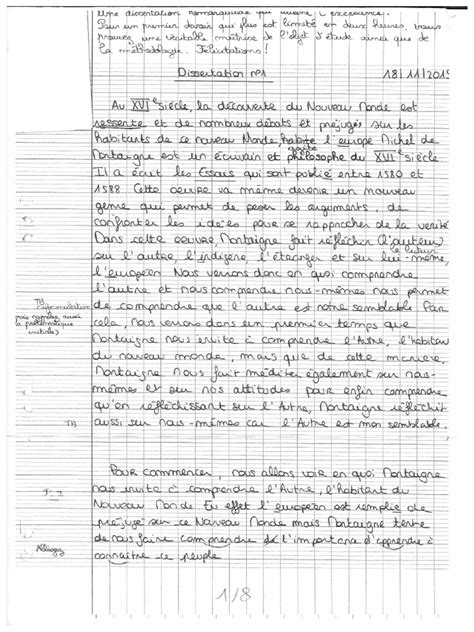 Une dissertation remarquable qui
Pour un premier devoir qui plus est limité en deux heures, vous
prouvez une véritable maîtrise de l'objet d'étude ainsi que de
la méthodologie. Félicitations!
Dissertation n°1
18/11/201
Au XVIe siècle, la découverte du Nouveau Monde est
ressente et de nombreux débats et préjugés sur les
habitants de ce nouveau Monde l'europe Michel de
Montaigne est un écrivain et philosophe du XVIe siècle
Il a écrit les Essais qui sont publié entre 1580 et
1588 Cette oeuvre va même devenir un nouveau
genre qui permet de peser les arguments, de
confronter les idées pour se rapprocher de la verité
Dans cette oeuvre Montaigne fait réfléchir
le lecteur
sur l'autre, l'indigène, l'étranger et sur lui-même,
l'européen Nous verrons donc en quoi comprendre
l'autre et nous comprendre nous-mêmes nous permet
TB
de comprendre que l'autre est notre semblable Par
cela, nous verrons dans un premier temps que
Montaigne nous invite à comprendre l'Autre, l'habitant
du nouveau monde, mais que de cette manière,
Montaigne nous fait méditer également sur nous-
mêmes et sur nos attitudes pour enfin comprendre
qu'en réfléchissant sur l'Autre, Montaigne réfléchit
TB
aussi sur nous-mêmes car l'Autre est mon semblable.
Pour commencer, nous allons voir en quoi Montaigne
nous invite à comprendre l'Autre, l'habitant du
Nouveau Monde En effet l'européen est remplie de
préjugé sur ce Nouveau Monde mais Montaigne tente
de nous faire comprendre l'importance d'apprendre à
connaître ce peuple
1/8